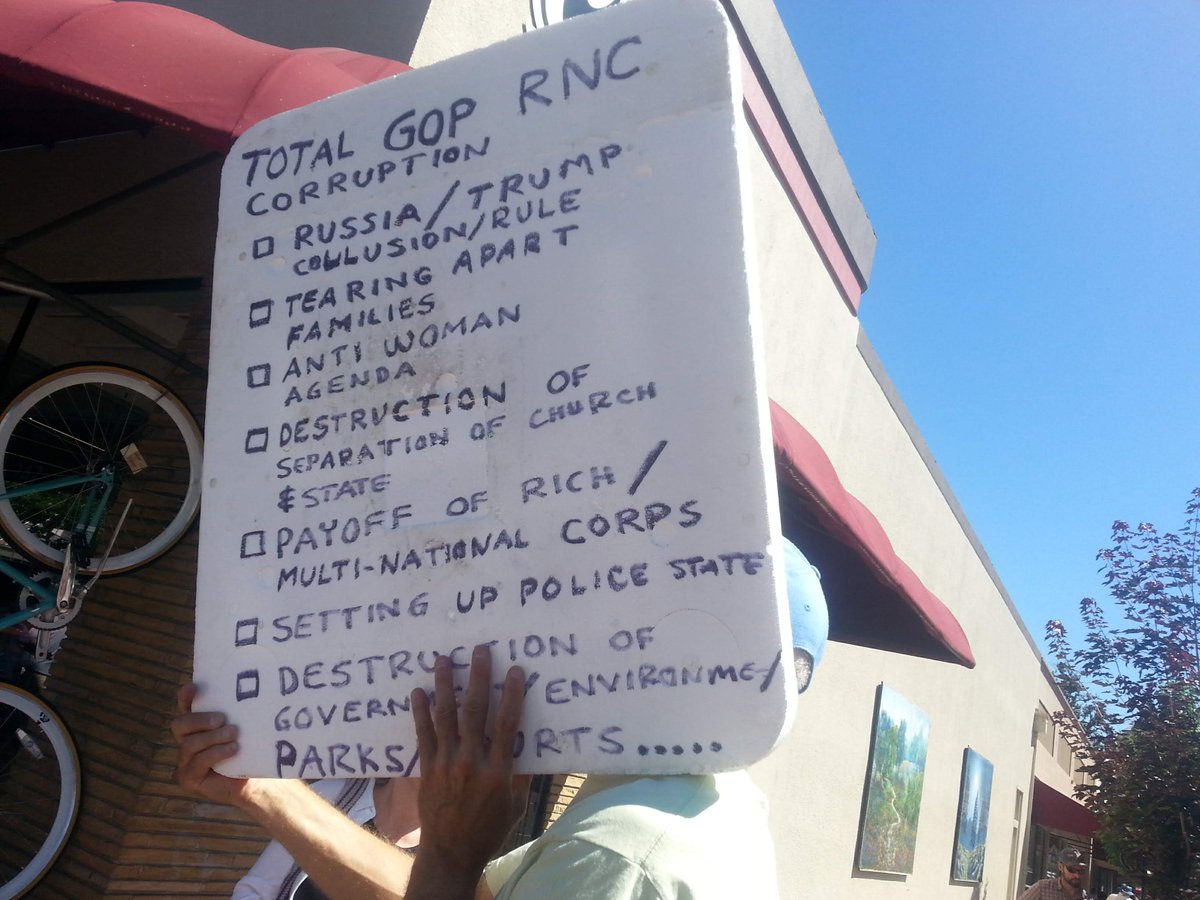 TOTAL GOP RNC
CORRUPTION
RUSSIA/TRUMP
COLLUSION/RULE
TEARING APART
FAMILIES
ANTI WOMAN
AGENDA
DESTRUCTION OF
SEPARATION OF CHURCH
& STATE
PAYOFF OF RICH/
MULTI-NATIONAL CORPS
SETTING UP POLICE STATE
DESTRUCTION OF
/ENVIRONME/
PARKS/.....